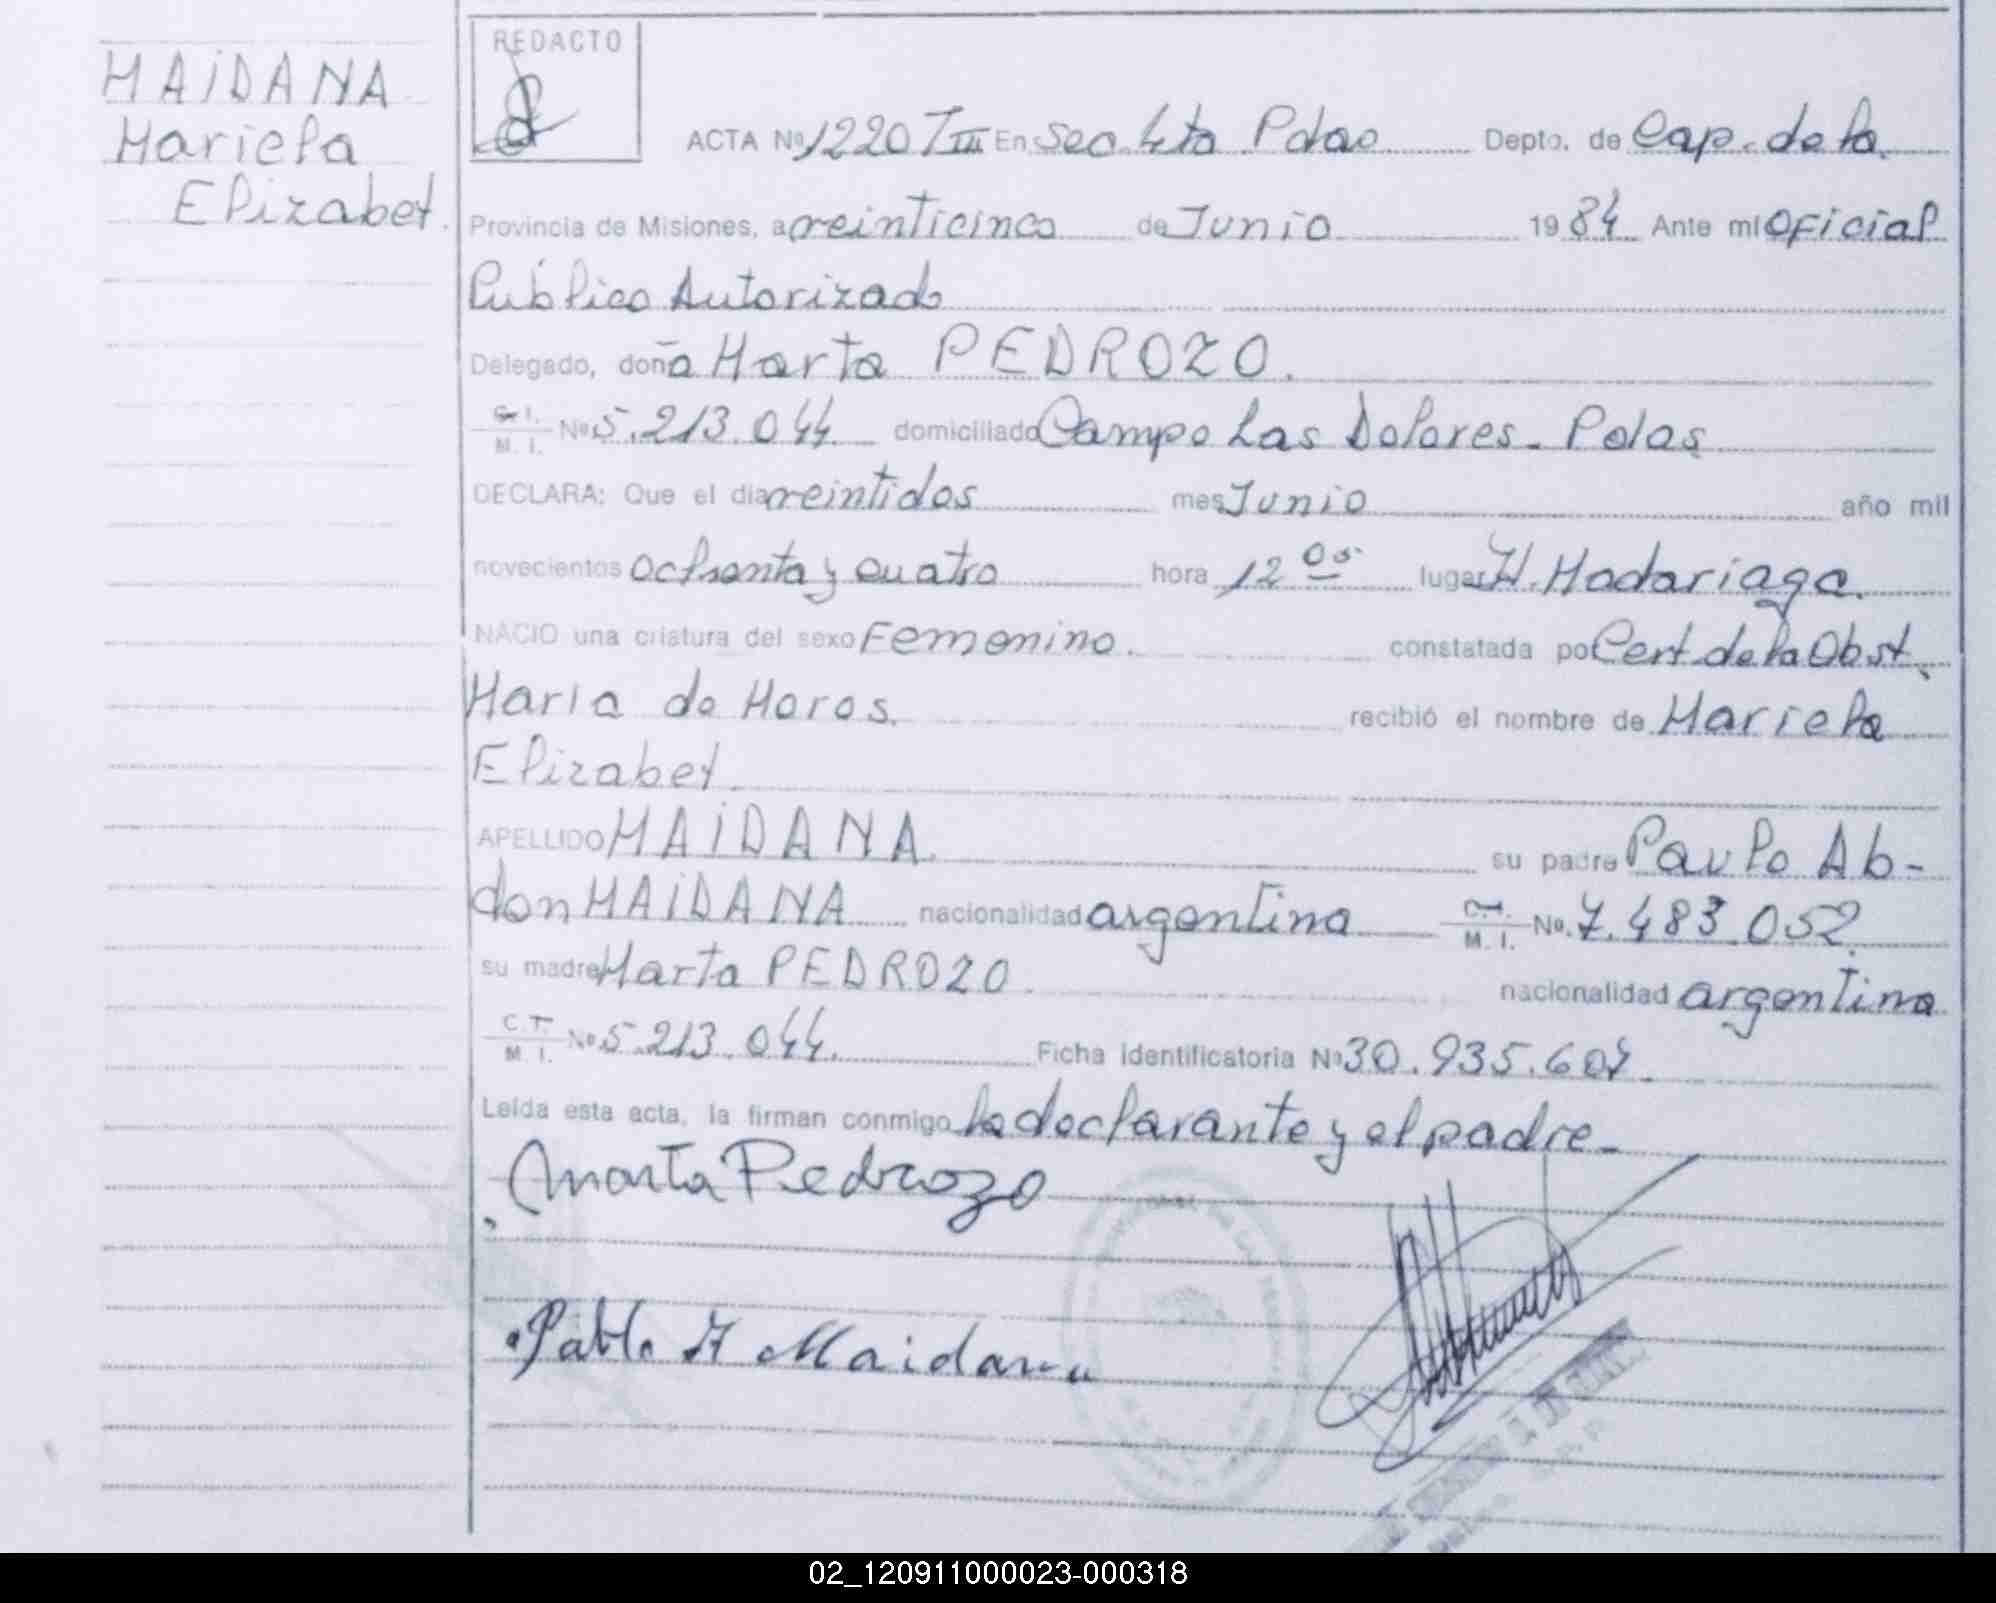 MAIDANA
Mariela
Elizabet.
REDACTO
ACTA Nº 1220 TIII En Sec. 4ta Pdas Depto. de Cap. de la
Provincia de Misiones, a veinticinco de Junio 1984 Ante mi Oficial
Público Autorizado
Delegado, doña Marta PEDROZO.
C. I. / M. I. Nº 5.213.044 domiciliado Campo Las Dolores - Pdas
DECLARA: Que el dia veintidos mes Junio año mil
novecientos ochenta y cuatro hora 12 05 lugar H. Madariaga.
NACIO una criatura del sexo Femenino. constatada po Cert. de la Obst.
Maria de Moros. recibió el nombre de Mariela
Elizabet
APELLIDO MAIDANA su padre Paulo Ab-
don MAIDANA nacionalidad argentina C.I. / M. I. No. 7.483.052
su madre Marta PEDROZO nacionalidad argentina
C.I. / M. I. Nº 5.213.044. Ficha Identificatoria Nº 30.935.607
Leída esta acta, la firman conmigo la declarante y el padre -
Marta Pedrozo
Pablo A Maidana
02_120911000023-000318